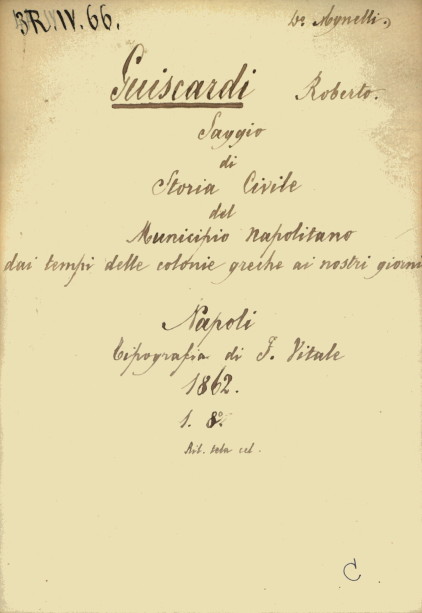 3R.IV.66.
Guiscardi Roberto.
Saggio
di
Storia Civile
del
Municipio Napolitano
dai tempi delle colonie greche ai nostri giorni
Napoli
Tipografia di F. Vitale
1862.
1. 8º
C